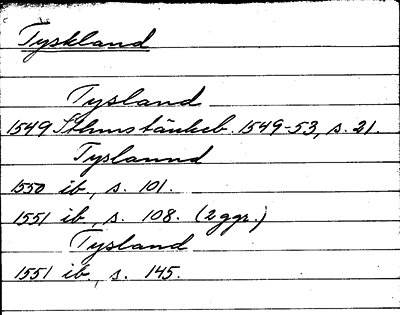 Tyskland
Tysland
1549 Sthmstänkeb. 1549-53, s. 21.
Tyslannd
1550 ib., s. 101.
1551 ib., s. 108. (2 ggr.)
Tysland
1551 ib., s. 145.